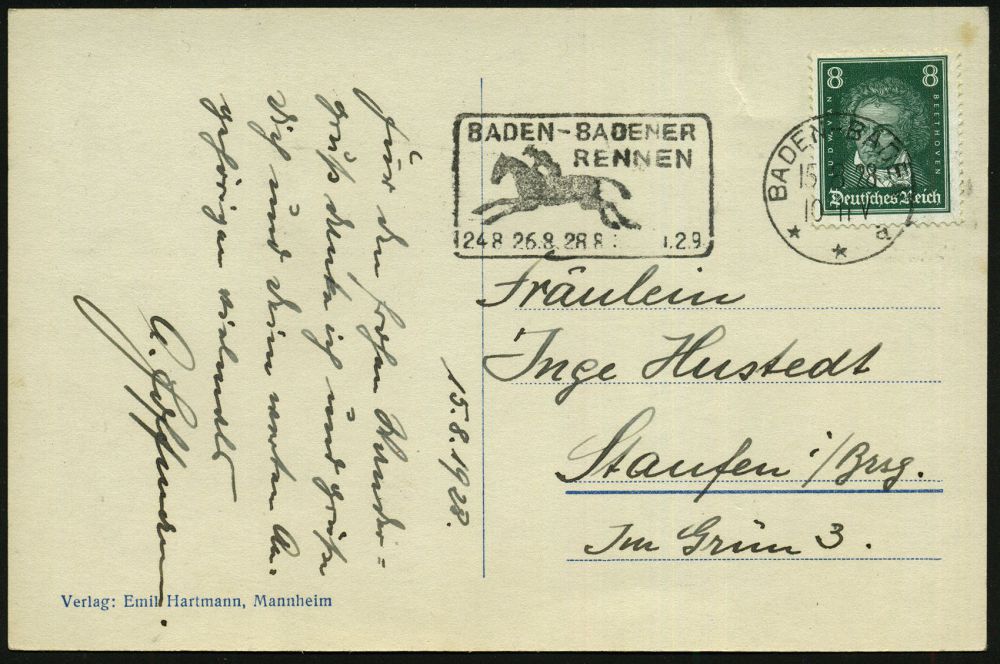 BADEN-BADENER
RENNEN
24.8 26.8. 28.8 1.2.9.
BADEN-BADEN
15. 8. 28
10-11 V
a
8 8
LUDWIG VAN
BEETHOVEN
Deutsches Reich
15. 8. 1928.
Für den frohen Wander-
gruß danke ich und grüße
Dich und Deine werten An-
gehörigen vielmals
Fräulein
Inge Hustedt
Staufen i/Brsg.
Im Grün 3.
Verlag: Emil Hartmann, Mannheim